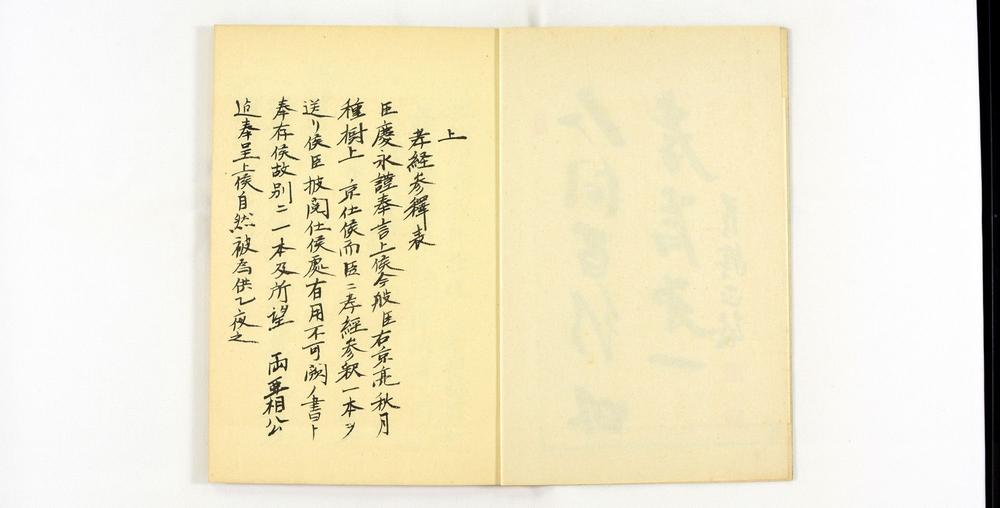 上
孝経参釋表
臣慶永謹奉言上候今般臣右京亮秋月
種樹上 京仕候而臣ニ孝経参釈一本ヲ
送リ候臣披閲仕候處有用不可闕ノ書ト
奉存候故別ニ一本及所望 両亜相公
迠奉呈上候自然被為供乙夜之